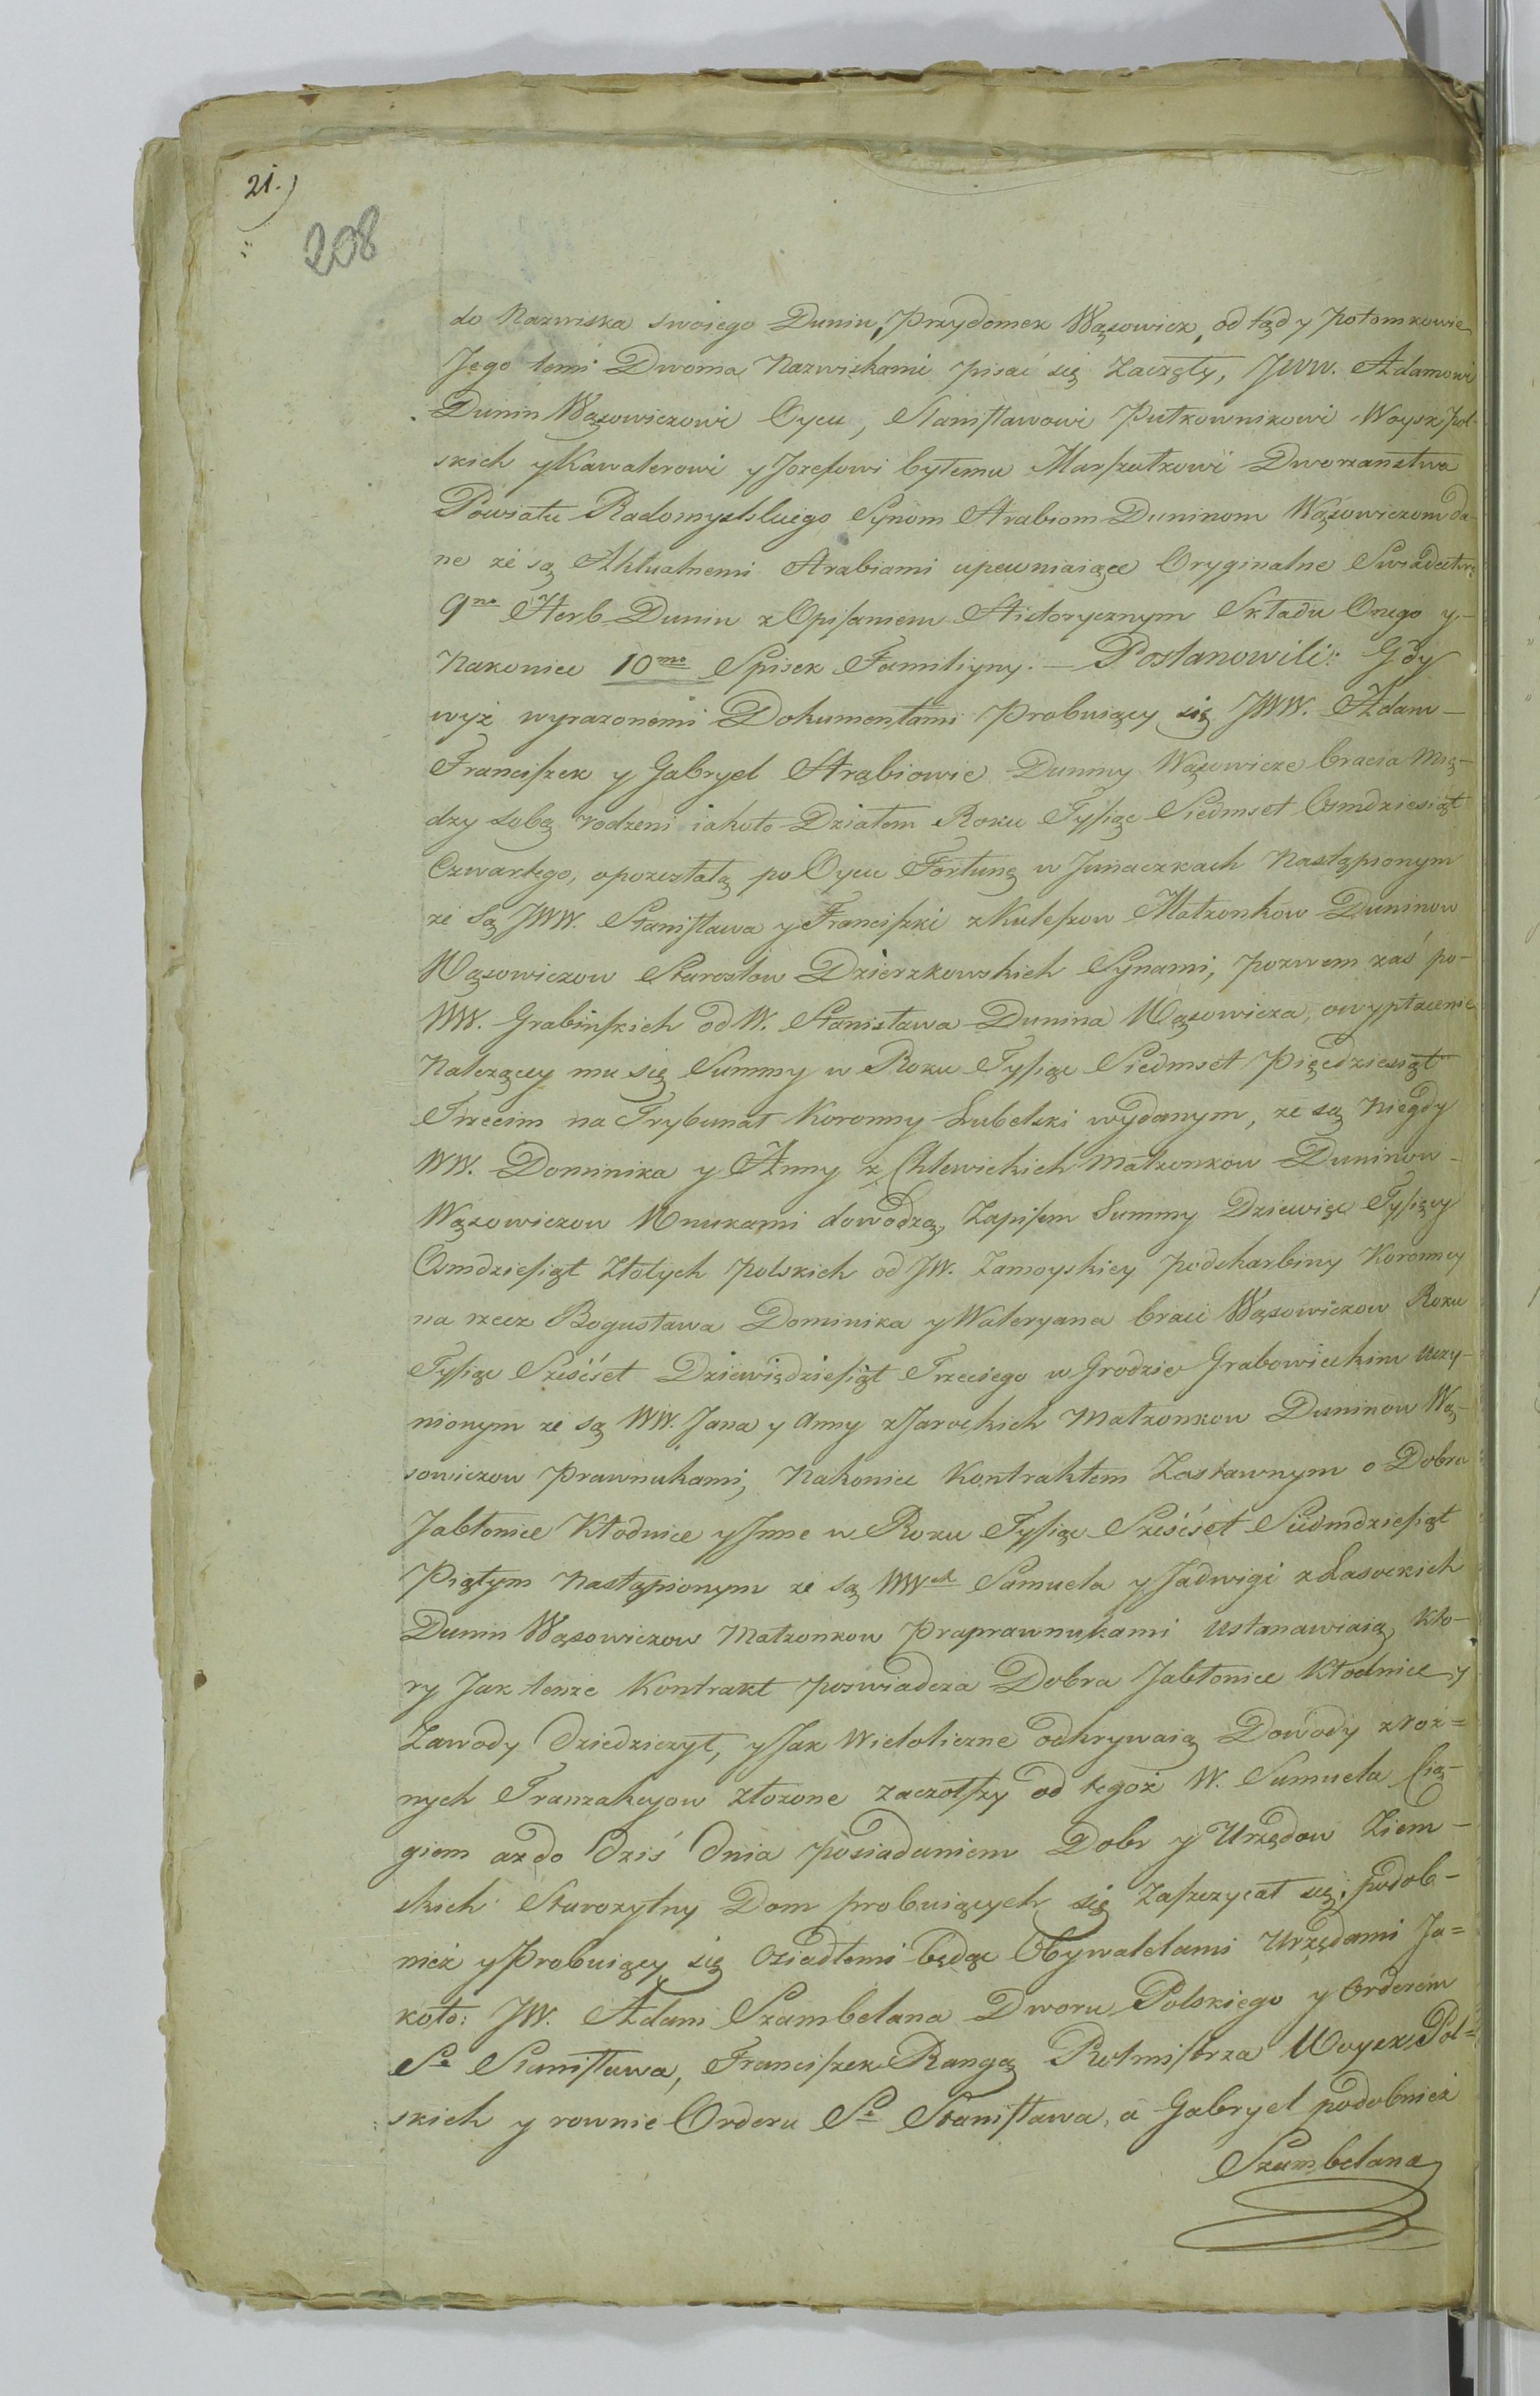 21.)
208
do Nazwiska swoiego Dunin, Przydomek Wąsowicz, od tąd y potomkowie
Jego temi Dwoma Nazwiskami pisać się zaczęły, JWW. Adamowi
Dunin Wąsowiczowi Oycu, Stanisławowi Pułkownikowi Woysk Pol-
skich y Kawalerowi y Jozefowi byłemu Marszałkowi Dworzaństwa
Powiatu Radomyslskiego Synom Hrabiom Duninom Wąsowiczom da-
ne że są Aktualnemi Hrabiami upewniaiące Oryginalne Swiadectwo
9no Herb Dunin z Opisaniem Historycznym Składu Onego y-
Nakoniec 10mo Spisek Familiyny. — Postanowili: Gdy
wyż wyrażonemi Dokumentami Probuiący się JWW. Adam—
Franciszek y Gabryel Hrabiowie Duniny Wąsowicze bracia mię-
dzy sobą rodzeni iakoto Działem Roku Tysiąc Siedmset Osmdziesiąt
Czwartego, o pozostałą po Oycu Fortunę w Junaczkach Nastąpionym
że są JWW. Stanisława y Franciszki z Kuleszow Małżonkow Duninow
Wąsowiczow Starostow Dzierzkowskich Synami, pozwem zaś po-
WW. Grabinskich od W. Stanisława Dunina Wąsowicza, o wypłacenie
Należącey mu się Summy w Roku Tysiąc Siedmset Pięcdziesiąt
Trzecim na Trybunał Koronny Lubelski wydanym, że są Niegdy
WW. Dominika y Anny z Chlewickich Małżonkow Duninow-
Wąsowiczow Wnukami dowodzą, Zapisem Summy Dziewięc Tysięcy
Osmdziesiąt Złotych Polskich od JW. Zamoyskiey Podskarbiny Koronney
na rzecz Bogusława Dominika y Waleryana braci Wąsowiczow Roku
Tysiąc Szesćset Dziewiędziesiąt Trzeciego w Grodzie Grabowieckim uczy-
nionym że są WW. Jana y Anny z Jarockich Małżonkow Duninow Wą-
sowiczow Prawnukami, Nakoniec Kontraktem Zastawnym o Dobra
Jabłonice Kłodnice y Jnne w Roku Tysiąc Szesćset Siedmdziesiąt
Piątym Nastąpionym że są WWch Samuela y Jadwigi z Lasockich
Dunin Wąsowiczow Małżonkow Praprawnukami ustanawiaią, Kto-
ry Jak tenże Kontrakt poswiadcza Dobra Jabłonice Kłodnice y
Zawody dziedziczył, y Jak Wieloliczne odkrywaią Dowody z roż=
nych Tranzakcyow złożone zacząłszy od tegoż W. Samuela Cią-
giem aż do dziś dnia posiadaniem Dobr y Urzędow Ziem-
skich Starożytny Dom probuiących się zaszczycał się; podob-
nież y Probuiący się osiadłemi będąc Obywatelami Urzędami Ja=
koto: JW. Adam Szambelana Dworu Polskiego y Orderem
Sgo Stanisława, Franciszek Rangą Rotmistrza Woysk Pol=
skich y rownie Orderu Sgo Stanisława, a Gabryel podobnież
Szambelana